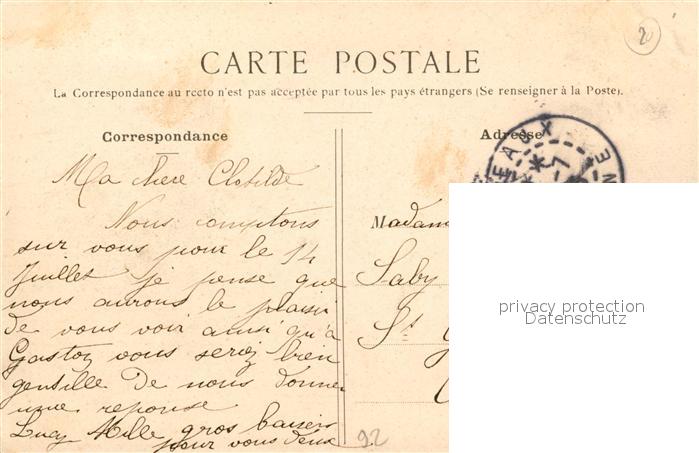 20
CARTE POSTALE
La Correspondance au recto n'est pas acceptée par tous les pays étrangers (Se renseigner à la Poste).
Correspondance
Adresse
EAUX
NE
Ma chère Clotilde
Nous comptons
sur vous pour le 14
Juillet je pense que
nous aurons le plaisir
de vous voir ainsi qu'à
Gaston vous seriez bien
gentille de nous donner
une reponse
Lucy Mille gros baisers
pour vous deux
Madam
Saby
St
92
privacy protection
Datenschutz